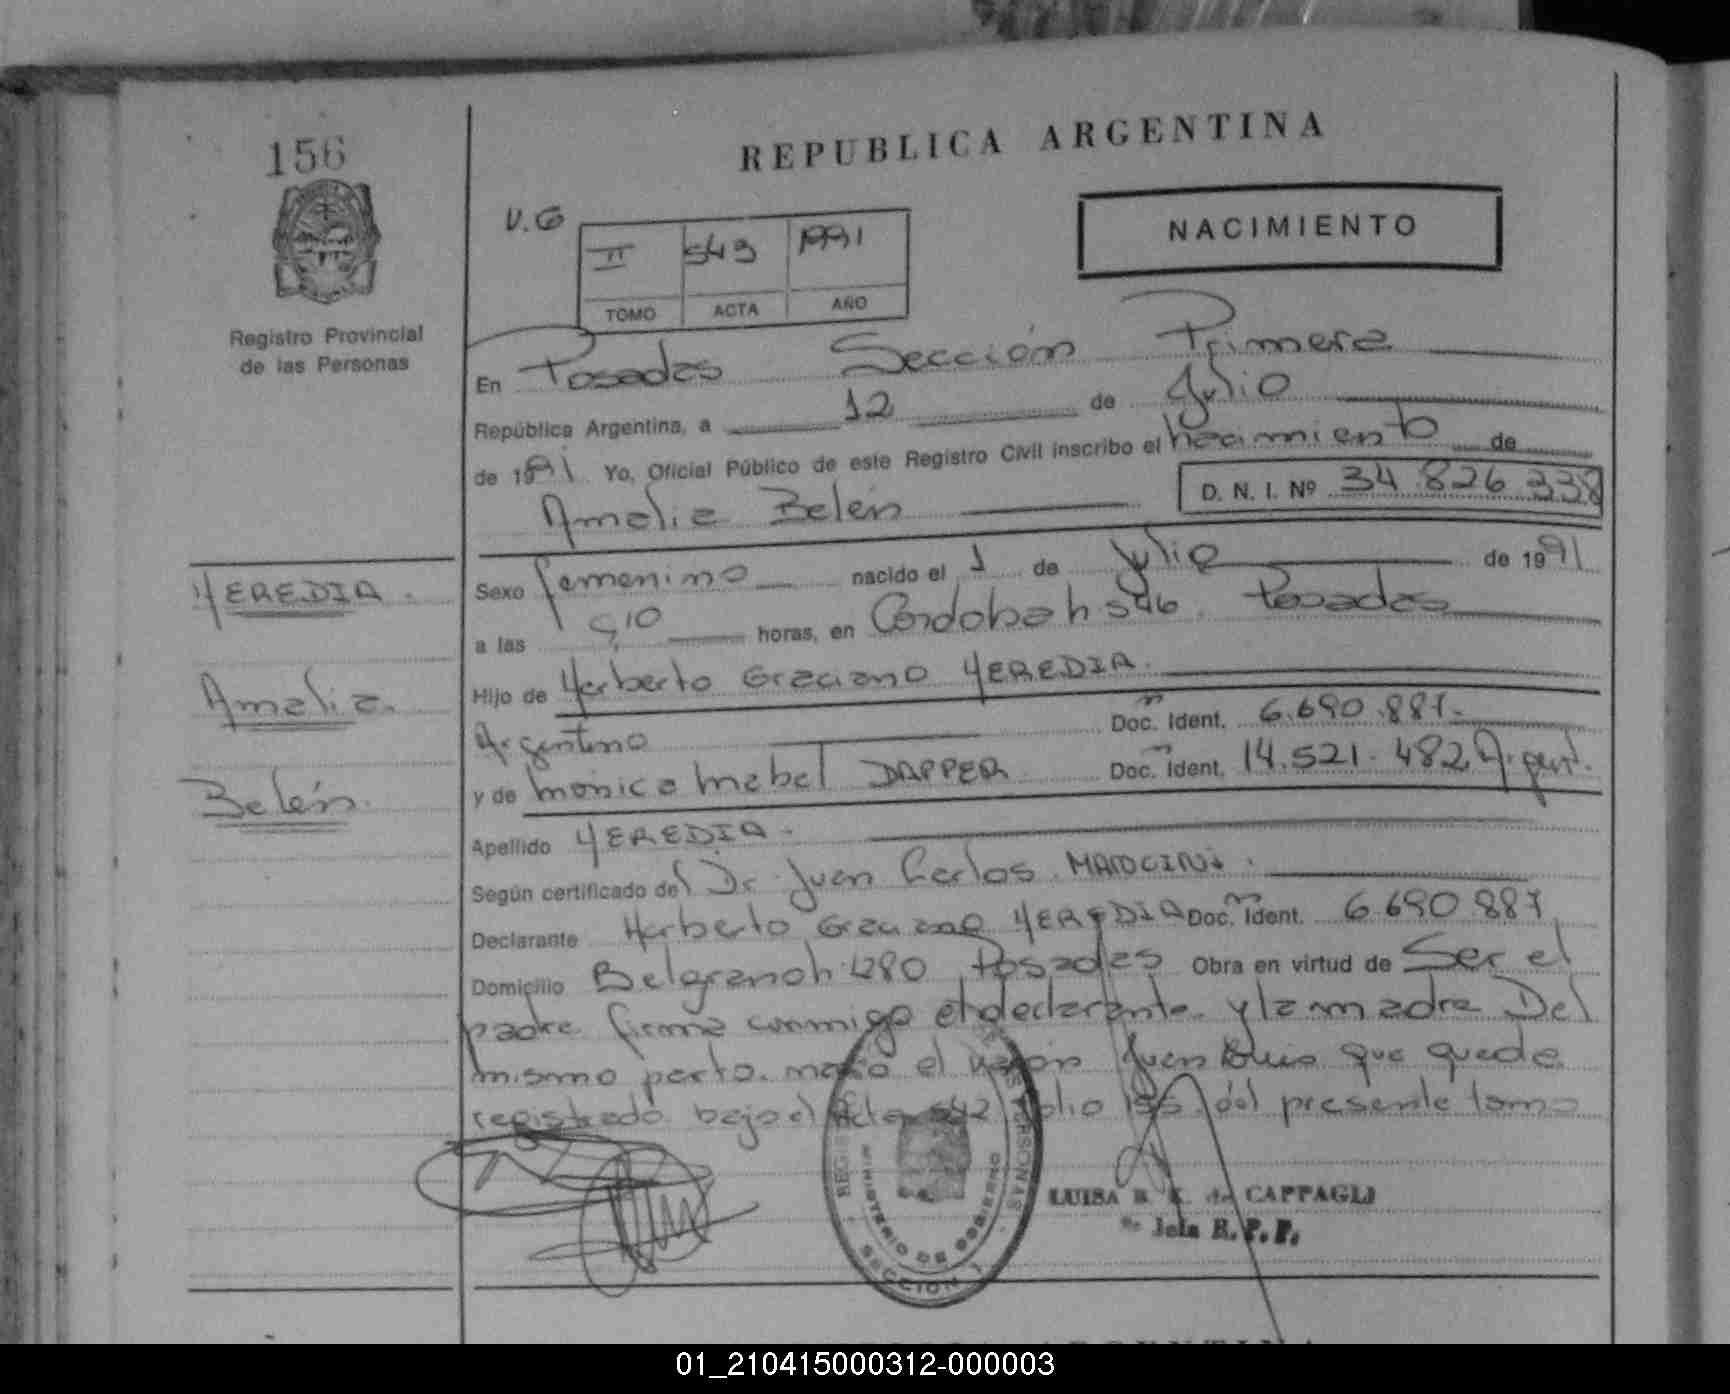 156
REPUBLICA ARGENTINA
NACIMIENTO
V.G
II 543 1991
TOMO ACTA AÑO
Registro Provincial
de las Personas
En Posadas Sección Primera
República Argentina, a 12 de Julio
de 1991 Yo, Oficial Público de este Registro Civil inscribo el nacimiento de
Amalia Belén D. N. I. Nº 34.826.338
HEREDIA.
Amalia
Belén.
Sexo femenino nacido el 1 de Julio de 1991
a las 9,10 horas, en Córdoba h 546. Posadas
Hijo de Herberto Graciano HEREDIA.
Argentino Doc. Ident. 6.690.887.
y de Monica Mabel DAPPER Doc. Ident. 14.521.482 Argent.
Apellido HEREDIA.
Según certificado del Dr. Juan Carlos
Declarante Herberto Graciano HEREDIA Doc. Ident. 6.690.887
Domicilio Belgrano h 1280 Posadas Obra en virtud de Ser el
padre. firma conmigo el declarante y la madre Del
mismo parto. nació el varón Juan que queda
registrado bajo el Acta 542 folio 155 del presente tomo
REGISTRO DE LAS PERSONAS
MINISTERIO DE GOBIERNO
SECCION 1
LUISA B. K. de CAPPAGLI
Jefa R.P.P.
01_210415000312-000003